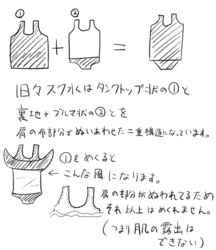 ① ②
+ =
旧々スク水はタンクトップ状の①と
裏地+ブルマ状の②とを
肩の布部分でぬいあわせた二重構造になっています。
①をめくると
← こんな風になります。
肩の部分がぬわれてるため
それ以上はめくれません。
(つまり肌の露出は
できない)